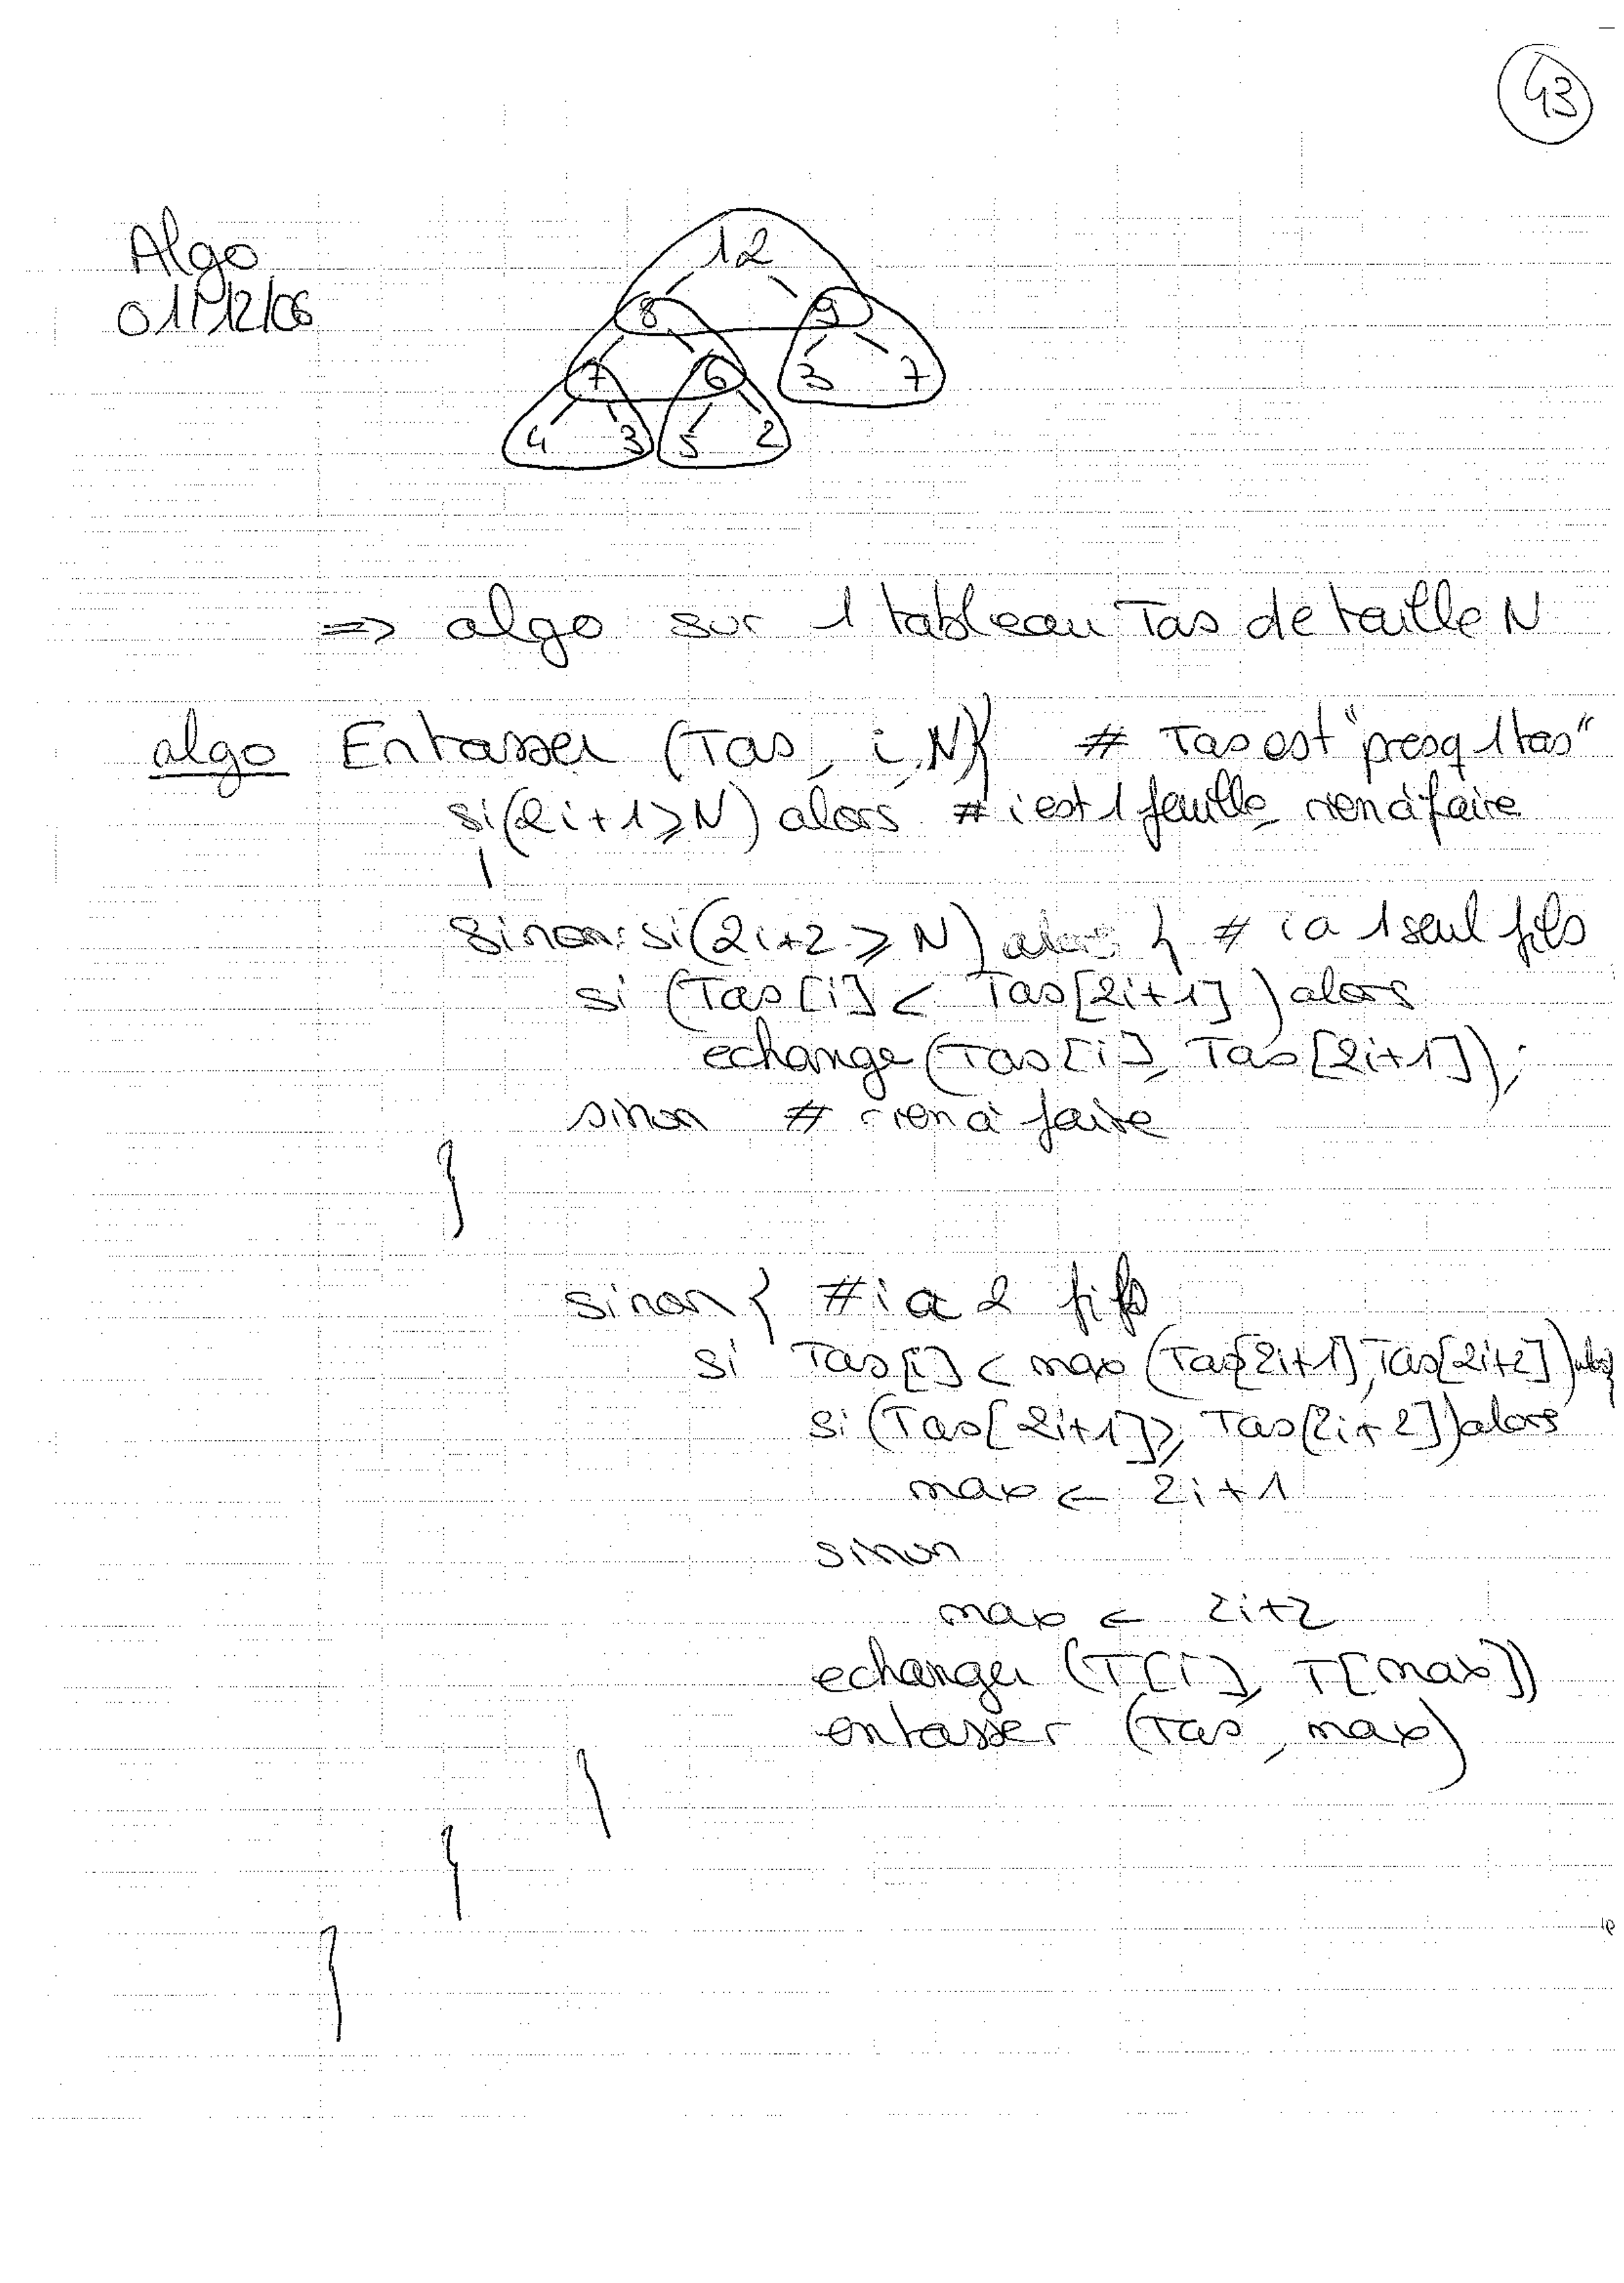 43
Algo
01/12/06
12
8 9
7 6 3 7
4 3 5 2
=> algo sur 1 tableau Tas de taille N
algo Entasser (Tas, i, N){ # Tas est "presq 1 tas"
si(2i+1≥N) alors # i est 1 feuille, rien à faire
sinon: si(2i+2 ≥ N) alors { # i a 1 seul fils
si (Tas[i] < Tas[2i+1]) alors
echange(Tas[i], Tas[2i+1]);
sinon # rien à faire
}
sinon { # i a 2 fils
si Tas[i] < max (Tas[2i+1], Tas[2i+2]) alors{
si (Tas[2i+1] ≥ Tas[2i+2]) alors
max ← 2i+1
sinon
max ← 2i+2
echanger (T[i], T[max])
entasser (Tas, max)
}
}
}